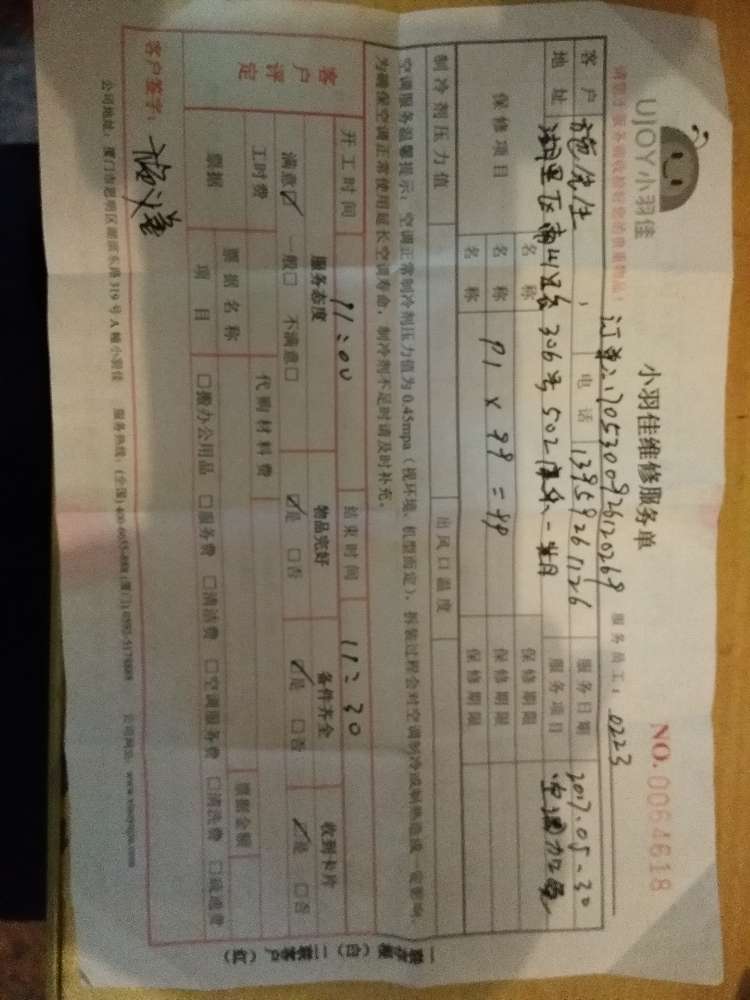 UJOY小羽佳
小羽佳维修服务单
NO. 0064618
请您于服务前收拾好您的贵重物品!
订单:1705300926120269
服务员工: 0223
客户 施先生 电话 13959261126 服务日期 2017.05-30
地址 湖里区 306号502 服务项目 空调加
保修项目 名称 保修期限
名称 P1×98=98 保修期限
名称 保修期限
制冷剂压力值 出风口温度
空调服务温馨提示:空调正常制冷剂压力值为0.45mpa(视环境、机型而定),拆装过程会对空调制冷或制热造成一定影响,
为确保空调正常使用延长空调寿命,制冷剂不足时请及时补充。
客户评定 开工时间 11:00 结束时间 11:30
服务态度 物品完好 备件齐全 收到卡片
满意☑ 一般□ 不满意□ ☑是 □否 ☑是 □否 ☑是 □否
工时费 代购材料费
票据 票据名称 票据金额
项目 □搬办公用品 □服务费 □清洁费 □空调服务费 □清洗费 □疏通费
客户签字:
公司地址:厦门市思明区湖滨东路319号A幢小羽佳 服务热线:(全国)400-0655-888 (厦门)0592-5178888 公司网站:www.xmxyj.com
一联存根(白) 二联客户(红)